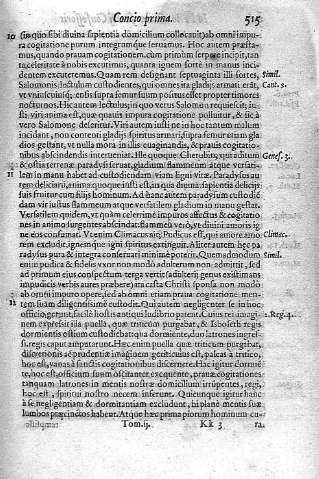 Concio prima. 515
10 (in quo sibi diuina sapientia domicilium collocauit) ab omni impu-
ra cogitatione purum integrumque seruamus. Hoc autem præsta-
mus, quando prauam cogitationem, cum primùm serpere incipit, tan
ta celeritate à nobis excutimus, quanta ignem forte in manus inci
dentem excuteremus. Quam rem designant septuaginta illi fortes, Simil.
Salomonis lectulum custodientes, qui omnes ita gladijs armati erāt, Cant. 3.
vt vniuscuiusq; ensis supra femur suum positus esset propter timores
nocturnos. Hic autem lectulus, in quo verus Salomon requiescit, iu-
sti viri anima est, quæ quauis impura cogitatione polluitur, & sic à
vero Salomone deseritur. Viri autem iusti ne in hoc tantum malum
incidant, non contenti gladijs spiritus armari, supra femur etiam gla
dios gestant, vt nulla mora in illis euaginandis, & prauis cogitatio-
nibus abscindendis intercedat. Hic quoque Cherubin, qui aditum Genes. 3.
& ostia terrenæ paradysi seruat, gladium flammeum atque versati-
11 lem in manu habet ad custodiendam viam ligni vitæ. Paradysus au
tem deliciarū, anima quoque iusti est, in qua diuina sapientia delicijs
suis fruitur cum filijs hominum. Ad hanc autem paradysum custodiē
dam vir iustus flammeum atque versatilem gladium in manu gestat.
Versatilem quidem, vt quàm celerrimè impuros affectus & cogitatio
nes in animo surgentes abscindat: flammeū verò, vt diuini amoris ig
ne eos consumat. Vt enim Climacus ait, Pudicus est, qui amore amo- Climac.
rem excludit, ignemque igni spiritus extinguit. Aliter autem hęc pa
radysus pura & integra conseruari minimè poterit. Quemadmodum Simil.
enim pudica & fidelis vxor non modò adulterum non admittit, sed
ad primum eius conspectum terga vertit (adulterij genus existimans
impudicis verbis aures præbere) ita casta Christi sponsa non modò
ab omni impuro opere, sed ab omni etiam praua cogitatione men-
12 tem suam diligentissimè custodit. Qui autem negligenter se in hoc
officio gerunt, facilè hostis antiqui ludibrio patent. Cuius rei imagi- 2. Reg. 4.
nem expressit illa puella, quæ triticum purgabat, & Isboseth regis
dormientis ostium custodiebat: qua dormiente, duo latrones ingres-
si, regis caput amputarunt. Hæc enim puella quæ triticum purgabat,
discretionis ac prudentiæ imaginem gerit: cuius est, paleas à tritico,
hoc est, vanas à sanctis cogitationibus discernere. Hæc igitur cùm
te, hoc est, officium suum oscitanter exequente, prauæ cogitationes
tanquam latrones in mentis nostræ domicilium irrūpentes, regi,
hoc est, spiritui nostro necem inferunt. Quicunque igitur hanc
à se negligentiam & dormitantiam excludunt, hi planè mentis suæ
lumbos præcinctos habent. Atque hæc prima piorum hominum cu-
Tom. ij. Kk 3 ra,